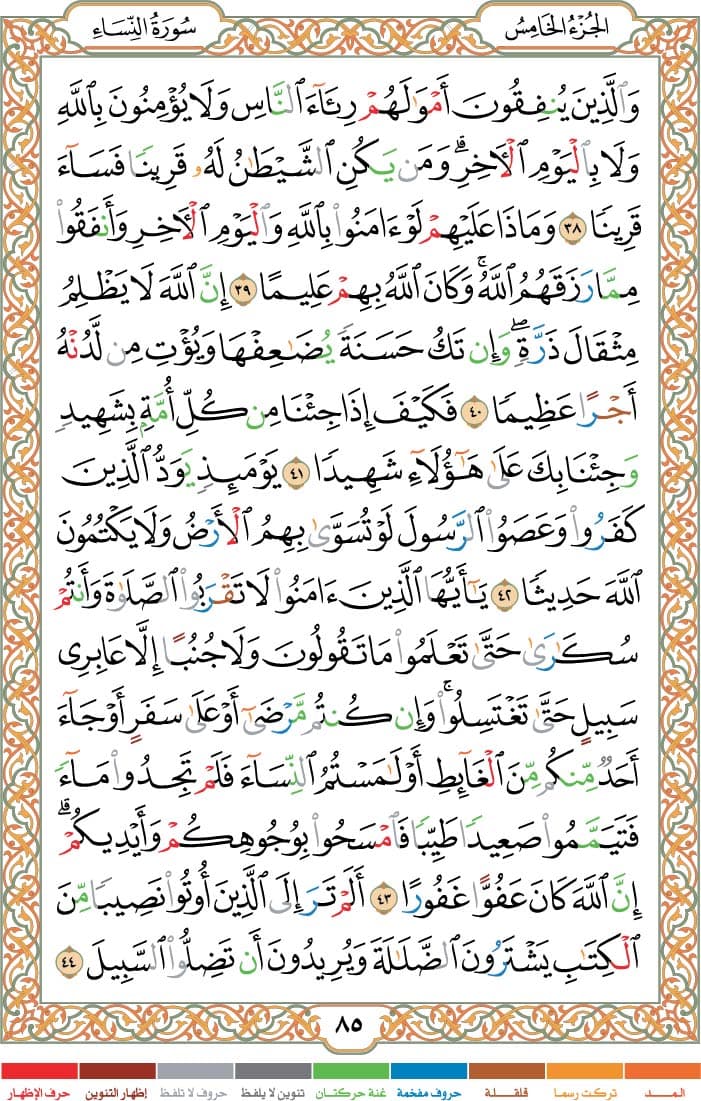 الجُزْءُ الخَامِسُ
سُورَةُ النِّسَاءِ
وَٱلَّذِينَ يُنفِقُونَ أَمۡوَٰلَهُمۡ رِئَآءَ ٱلنَّاسِ وَلَا يُؤۡمِنُونَ بِٱللَّهِ
وَلَا بِٱلۡيَوۡمِ ٱلۡأٓخِرِۗ وَمَن يَكُنِ ٱلشَّيۡطَٰنُ لَهُۥ قَرِينٗا فَسَآءَ
قَرِينٗا ٣٨ وَمَاذَا عَلَيۡهِمۡ لَوۡ ءَامَنُواْ بِٱللَّهِ وَٱلۡيَوۡمِ ٱلۡأٓخِرِ وَأَنفَقُواْ
مِمَّا رَزَقَهُمُ ٱللَّهُۚ وَكَانَ ٱللَّهُ بِهِمۡ عَلِيمًا ٣٩ إِنَّ ٱللَّهَ لَا يَظۡلِمُ
مِثۡقَالَ ذَرَّةٖۖ وَإِن تَكُ حَسَنَةٗ يُضَٰعِفۡهَا وَيُؤۡتِ مِن لَّدُنۡهُ
أَجۡرًا عَظِيمٗا ٤٠ فَكَيۡفَ إِذَا جِئۡنَا مِن كُلِّ أُمَّةِۭ بِشَهِيدٖ
وَجِئۡنَا بِكَ عَلَىٰ هَٰٓؤُلَآءِ شَهِيدٗا ٤١ يَوۡمَئِذٖ يَوَدُّ ٱلَّذِينَ
كَفَرُواْ وَعَصَوُاْ ٱلرَّسُولَ لَوۡ تُسَوَّىٰ بِهِمُ ٱلۡأَرۡضُ وَلَا يَكۡتُمُونَ
ٱللَّهَ حَدِيثٗا ٤٢ يَٰٓأَيُّهَا ٱلَّذِينَ ءَامَنُواْ لَا تَقۡرَبُواْ ٱلصَّلَوٰةَ وَأَنتُمۡ
سُكَٰرَىٰ حَتَّىٰ تَعۡلَمُواْ مَا تَقُولُونَ وَلَا جُنُبًا إِلَّا عَابِرِي
سَبِيلٍ حَتَّىٰ تَغۡتَسِلُواْۚ وَإِن كُنتُم مَّرۡضَىٰٓ أَوۡ عَلَىٰ سَفَرٍ أَوۡ جَآءَ
أَحَدٞ مِّنكُم مِّنَ ٱلۡغَآئِطِ أَوۡ لَٰمَسۡتُمُ ٱلنِّسَآءَ فَلَمۡ تَجِدُواْ مَآءٗ
فَتَيَمَّمُواْ صَعِيدٗا طَيِّبٗا فَٱمۡسَحُواْ بِوُجُوهِكُمۡ وَأَيۡدِيكُمۡۗ
إِنَّ ٱللَّهَ كَانَ عَفُوًّا غَفُورًا ٤٣ أَلَمۡ تَرَ إِلَى ٱلَّذِينَ أُوتُواْ نَصِيبٗا مِّنَ
ٱلۡكِتَٰبِ يَشۡتَرُونَ ٱلضَّلَٰلَةَ وَيُرِيدُونَ أَن تَضِلُّواْ ٱلسَّبِيلَ ٤٤
٨٥
المـــد تركت رسما قلقـلـة حروف مفخمة غنة حركتـان تنوين لا يلفظ حروف لا تلفظ إظهار التنوين حرف الإظهار